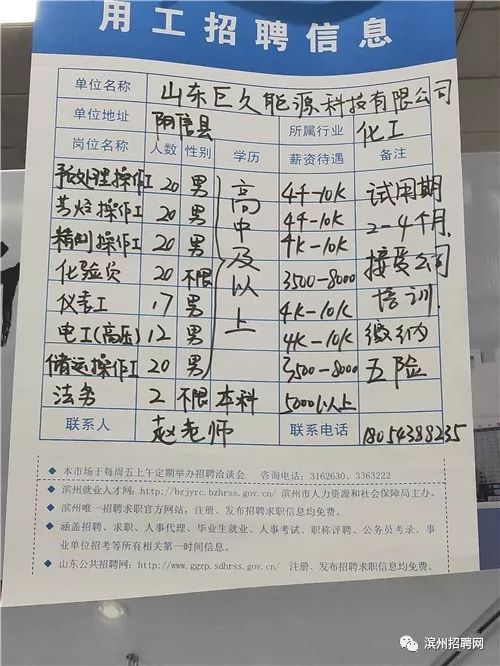 用工招聘信息
单位名称 山东巨久能源科技有限公司
单位地址 阳信县 所属行业 化工
岗位名称 人数 性别 学历 薪资待遇 备注
预处理操作工 20 男 高中及以上 4千-10K 试用期
芳烃操作工 20 男 4千-10K 2-4个月,
精制操作工 20 男 4K-10K 接受公司
化验员 20 不限 3500-8000 培训,
仪表工 17 男 4K-10K 缴纳
电工(高压) 12 男 4K-10K 五险
储运操作工 20 男 3500-8000
法务 2 不限 本科 5000以上
联系人 赵老师 联系电话 18054388235
◆ 本市场于每周五上午定期举办招聘洽谈会 咨询电话:3162630、3363222
◆ 滨州就业人才网:http://bzjyrc.bzhrss.gov.cn/ 滨州市人力资源和社会保障局主办。
◆ 滨州唯一招聘求职官方网站,注册、发布招聘求职信息均免费。
◆ 涵盖招聘、求职、人事代理、毕业生就业、人事考试、职称评聘、公务员考录、事
业单位招考等所有相关第一时间信息。
◆ 山东公共招聘网:http://www.ggzp.sdhrss.gov.cn/ 注册、发布招聘求职信息均免费。
滨州招聘网